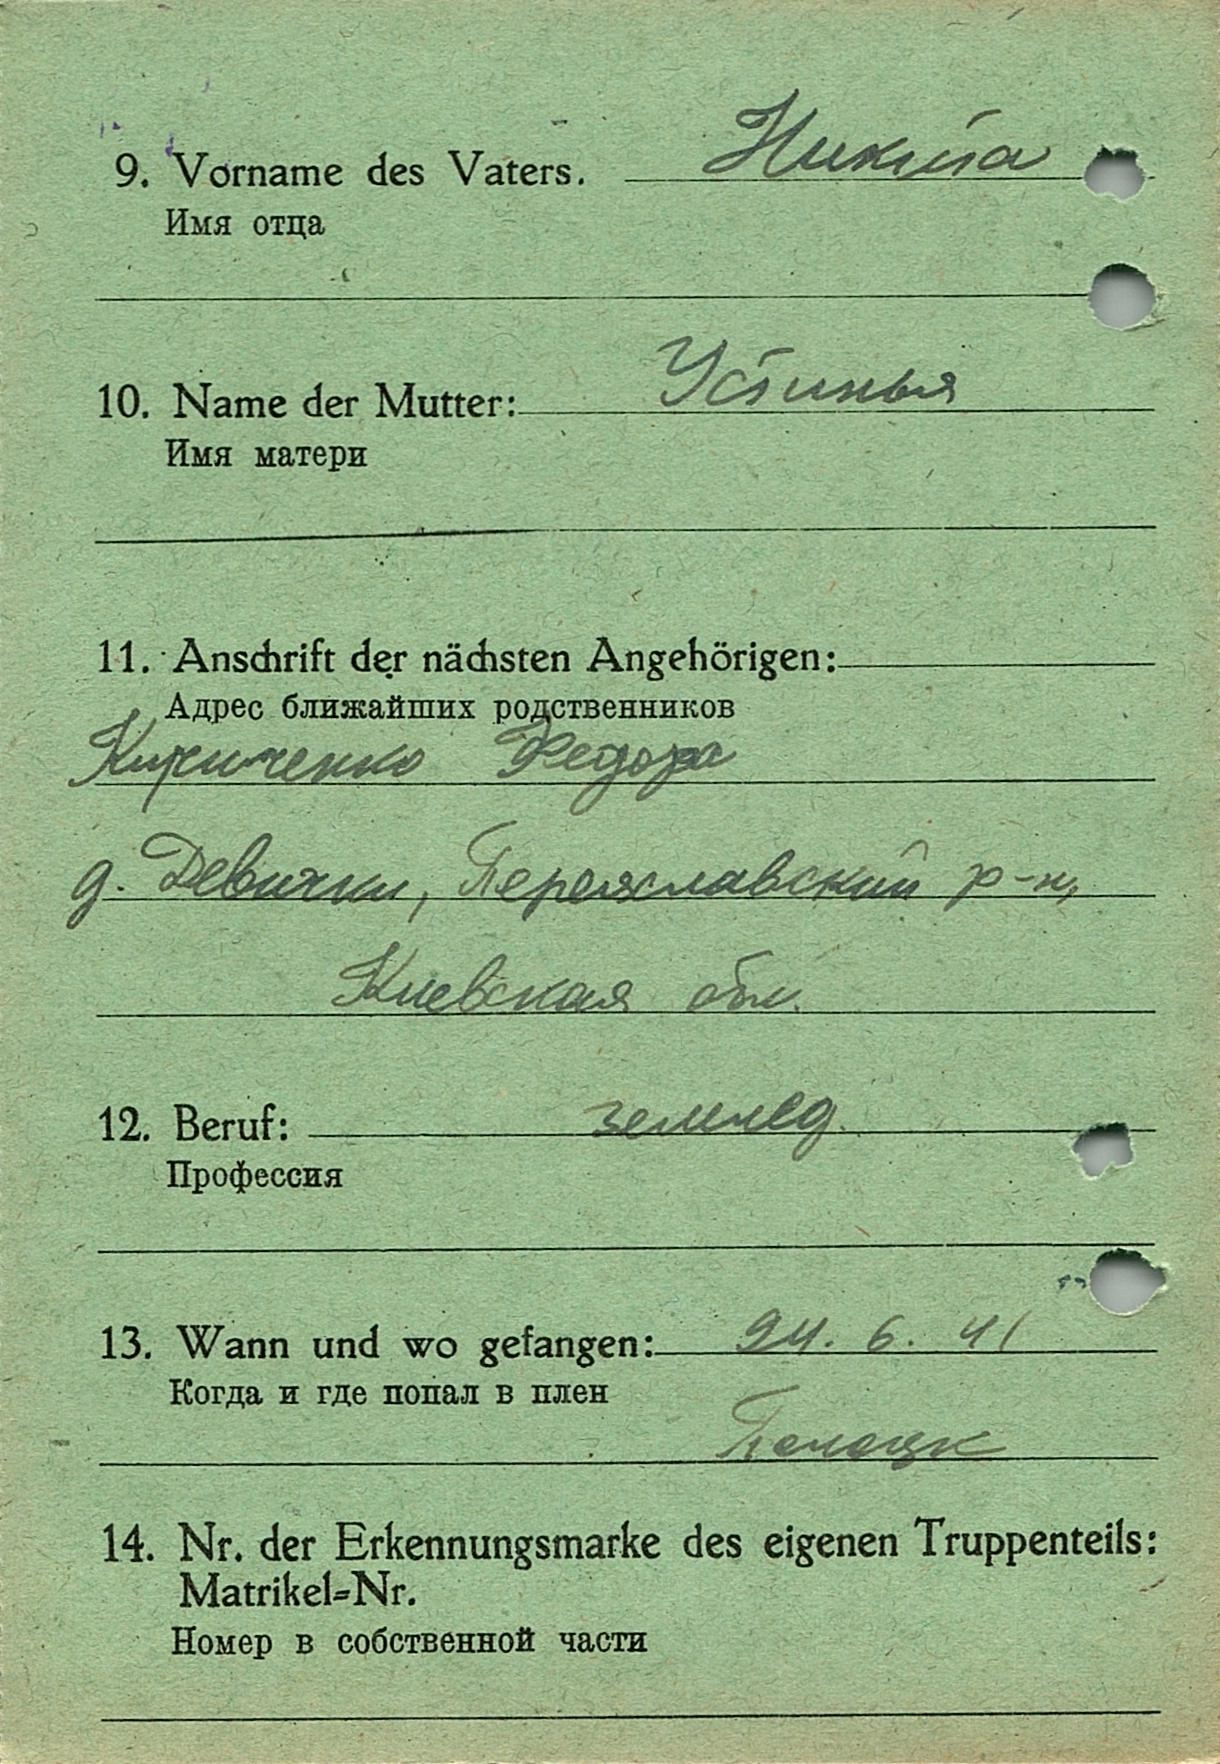 9. Vorname des Vaters. Никита
Имя отца
10. Name der Mutter: Устинья
Имя матери
11. Anschrift der nächsten Angehörigen:
Адрес ближайших родственников
Кириченко Федора
д. Девички, Переяславский р-н,
Киевская обл.
12. Beruf: землед.
Профессия
13. Wann und wo gefangen: 24. 6. 41
Когда и где попал в плен
Полоцк
14. Nr. der Erkennungsmarke des eigenen Truppenteils:
Matrikel=Nr.
Номер в собственной части